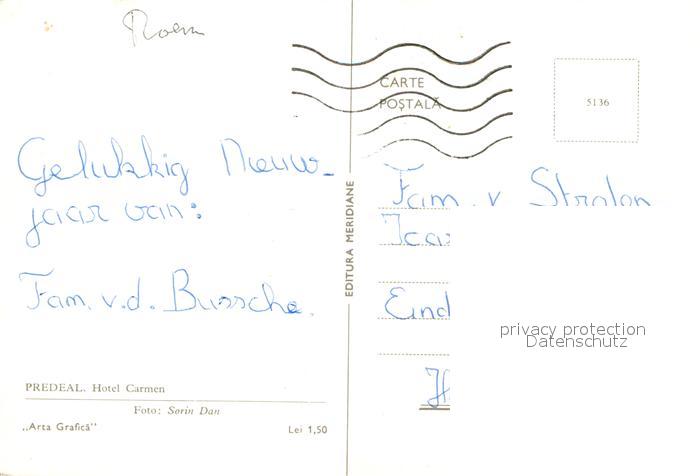 Roem
CARTE
POȘTALĂ
5136
Gelukkig Nieuw-
jaar van:
Fam. v.d. Bussche.
EDITURA MERIDIANE
Fam. v Stralen
Eind
PREDEAL. Hotel Carmen
Foto: Sorin Dan
„Arta Grafică"
Lei 1,50
privacy protection
Datenschutz